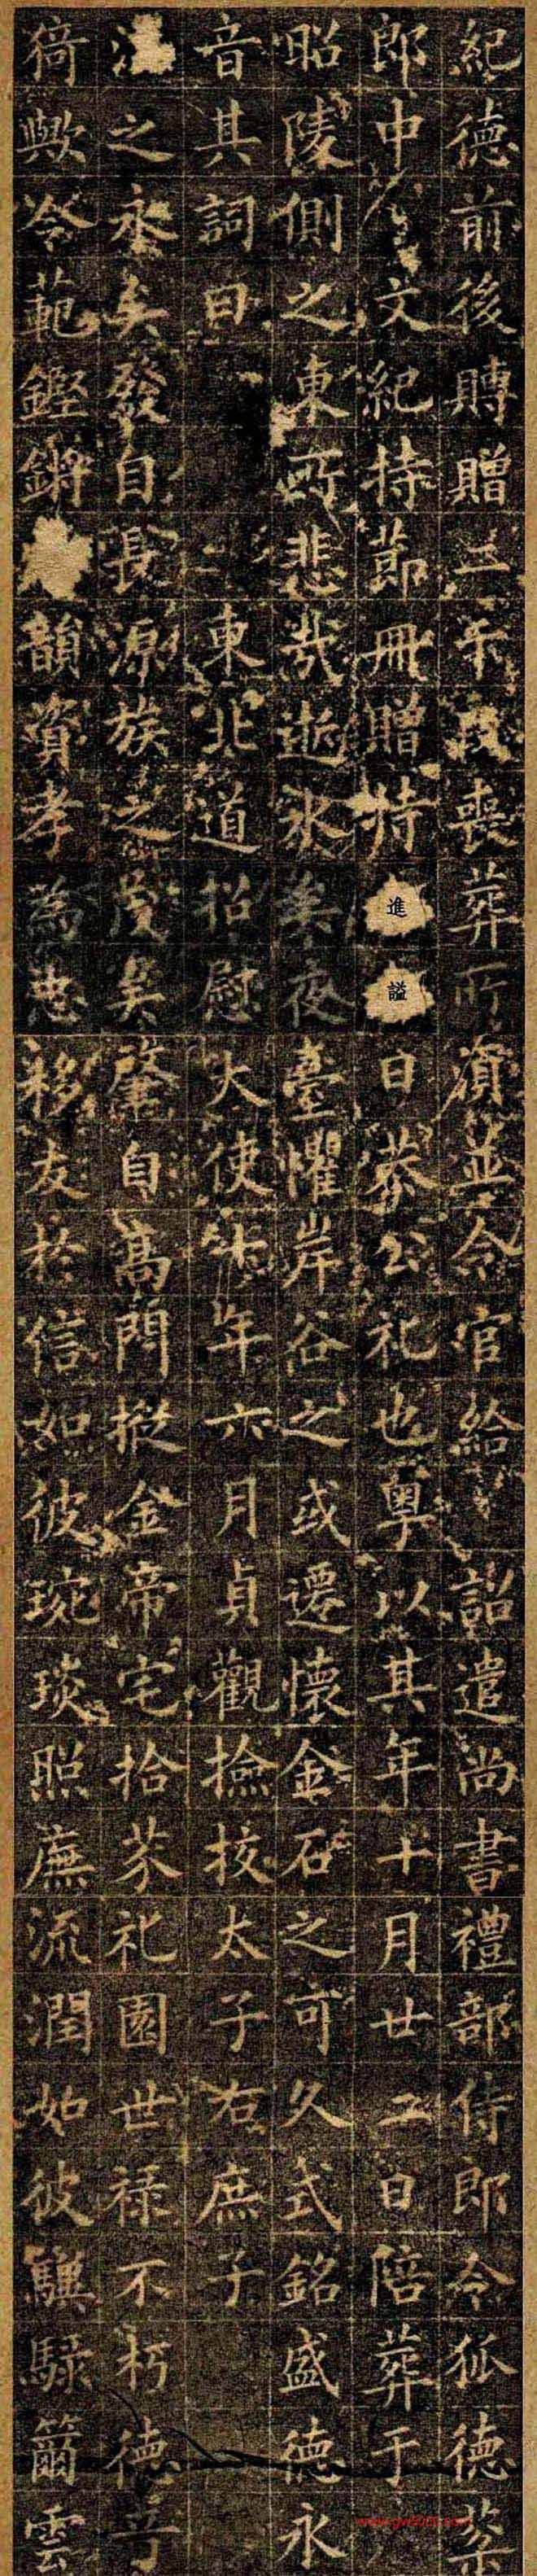 紀德前後賻贈二千段喪葬所資並令官給詔遣尚書禮部侍郎令狐德棻
郎中文紀持節冊贈特進謚曰恭公礼也粵以其年十月廿二日陪葬于
昭陵側之東西悲哉逝水矣夜臺懼岸谷之或遷懷金石之可久式銘盛德永
音其詞曰東北道招慰大使十年六月貞觀撿校太子右庶子
之永矣發自長源族之茂矣肇自高門摐金帝宅拾芥礼園世祿不朽德
猗歟令範鏗鏘韻資孝為忠移友於信如彼琬琰照廡流潤如彼驥騄籋雲